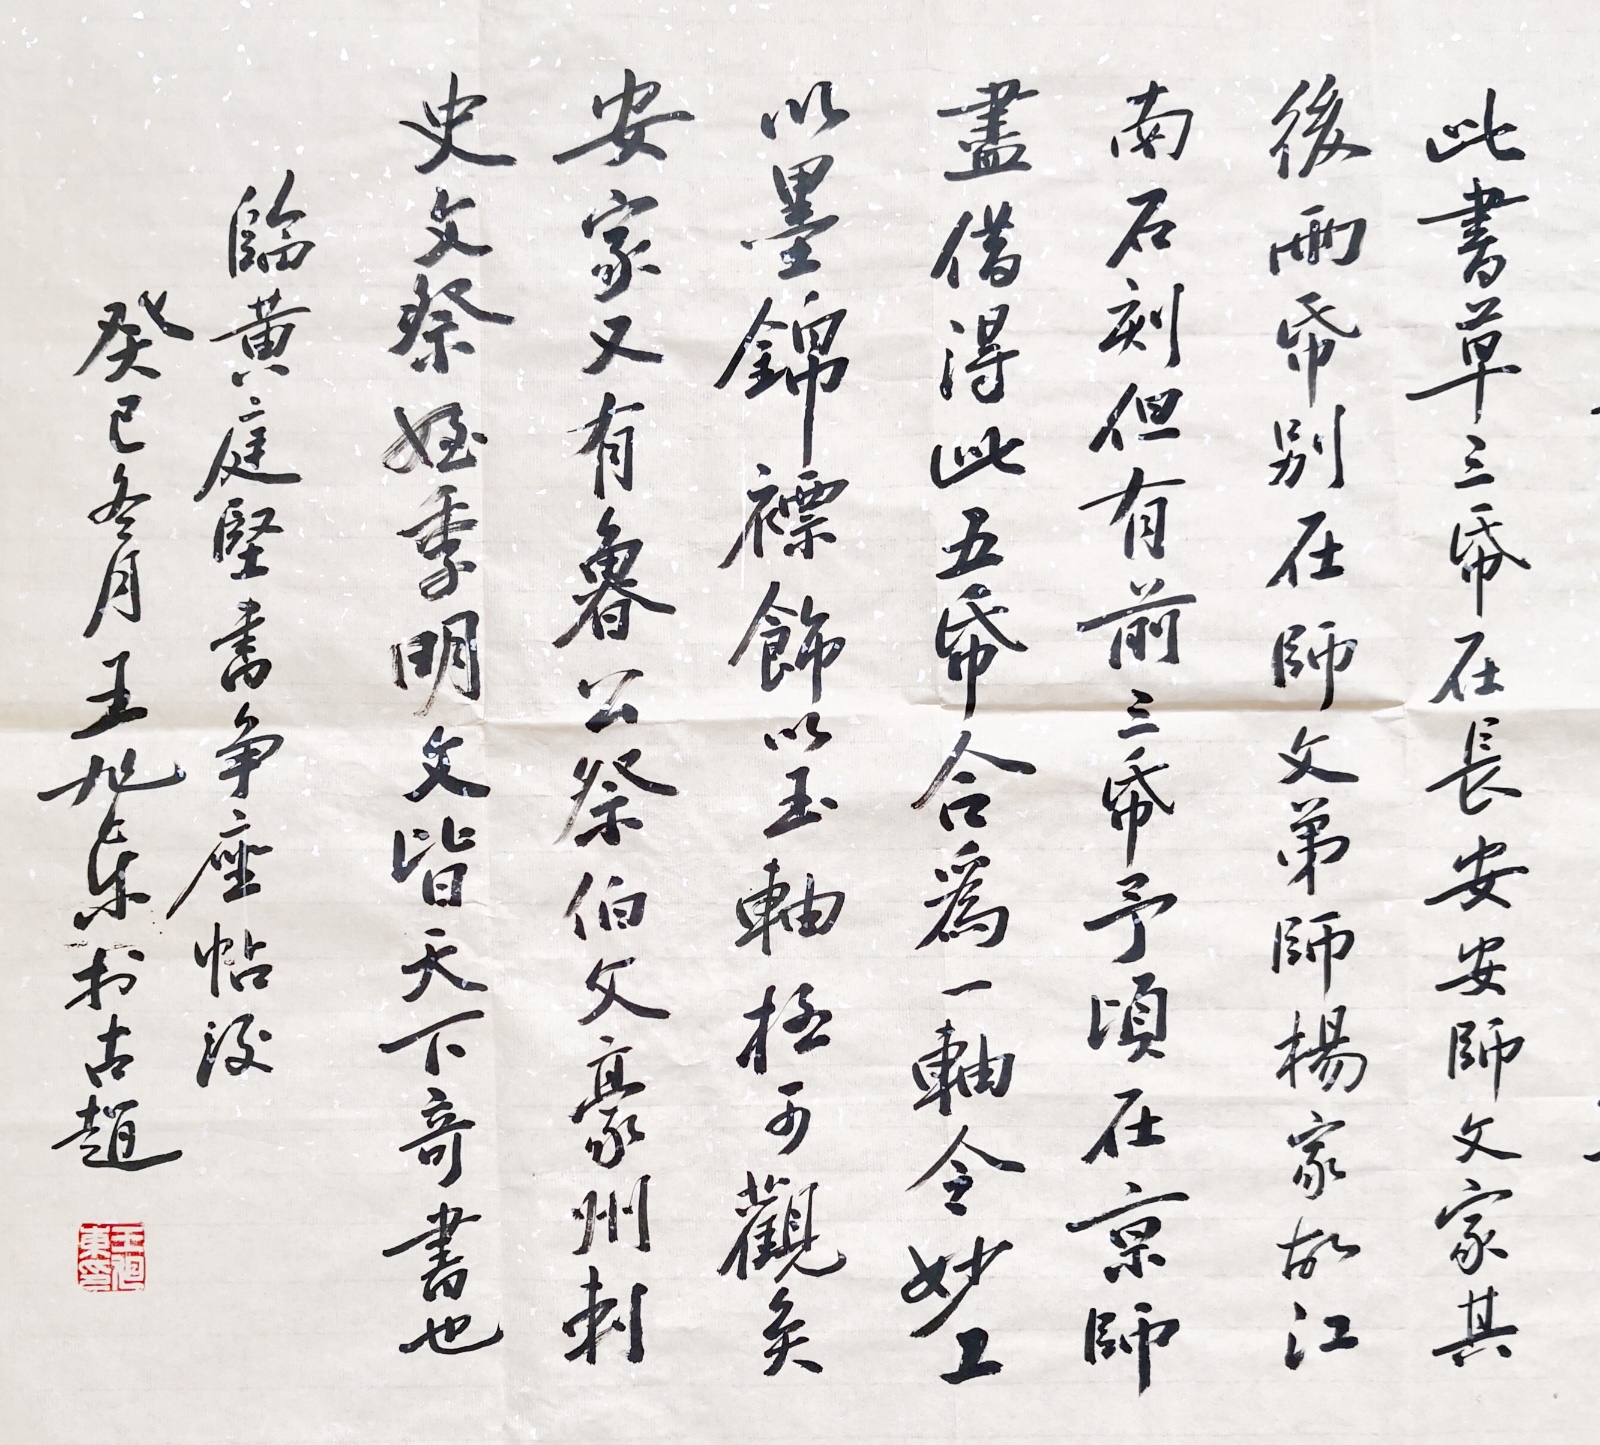 此書草三帋在長安安師文家其
後兩帋別在師文弟師楊家故江
南石刻但有前三帋予頃在京師
盡借得此五帋合爲一軸令妙工
以墨錦褾飾以玉軸極可觀矣
安家又有魯公祭伯父豪州刺
史文祭姪季明文皆天下奇書也
臨黄庭堅書争座帖後
癸巳冬月王旭東於古趙
王旭東印